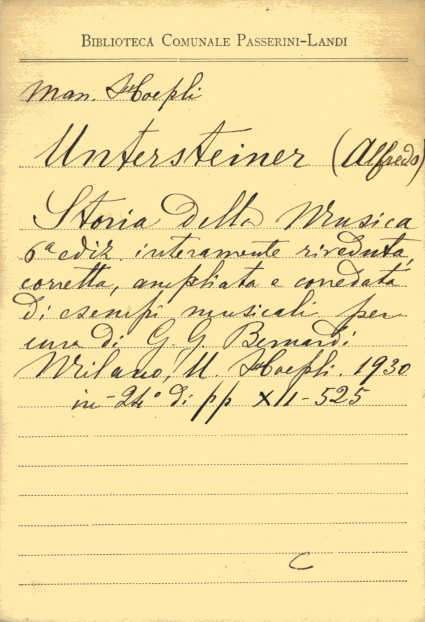 BIBLIOTECA COMUNALE PASSERINI-LANDI
Man. Hoepli
Untersteiner (Alfredo)
Storia della Musica
6ª ediz. interamente riveduta,
corretta, ampliata e corredata
di esempi musicali per
cura di G. G. Bernardi
Milano, U. Hoepli. 1930
in-24º di pp XII-525
C